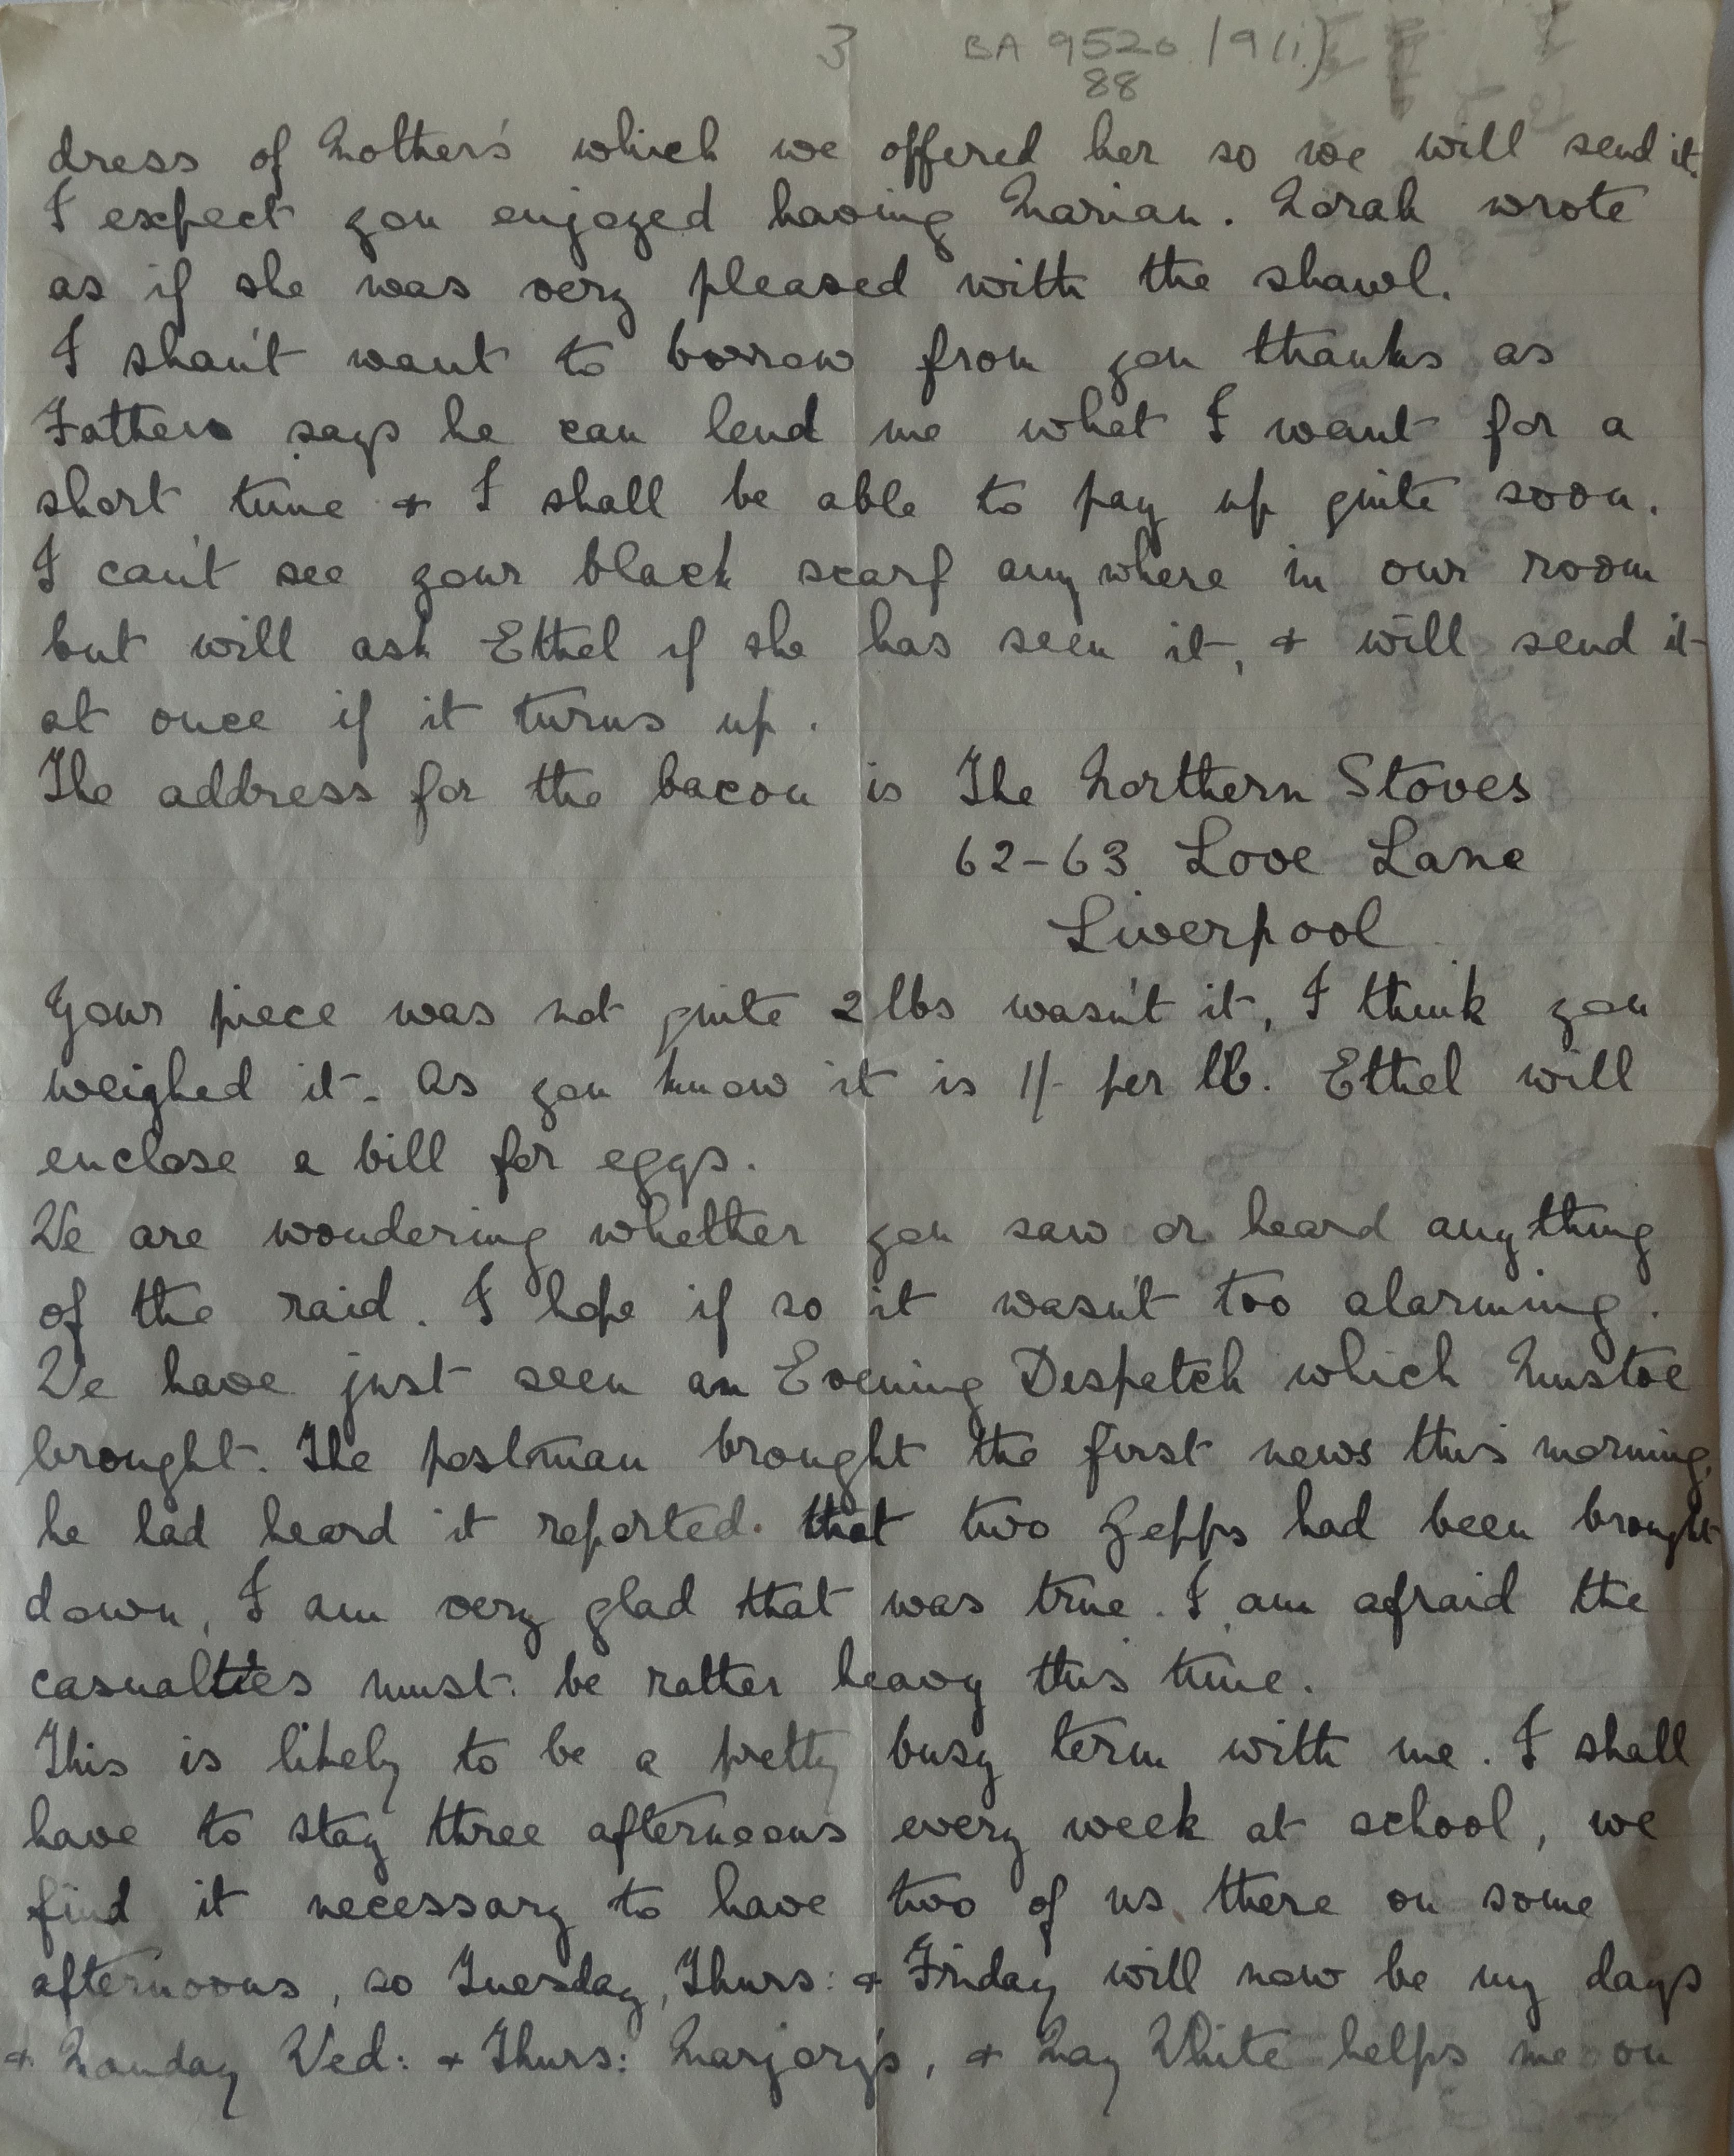 3 BA 9520/9(i)
88
dress of Mother's which we offered her so we will send it.
I expect you enjoyed having Marian. Norah wrote
as if she was very pleased with the shawl.
I shan't want to borrow from you thanks as
Father says he can lend me what I want for a
short time & I shall be able to pay up quite soon.
I can't see your black scarf anywhere in our room
but will ask Ethel if she has seen it, & will send it
at once if it turns up.
The address for the bacon is The Northern Stoves
62-63 Love Lane
Liverpool
Your piece was not quite 2 lbs wasn't it, I think you
weighed it. As you know it is 1/- per lb. Ethel will
enclose a bill for eggs.
We are wondering whether you saw or heard anything
of the raid. I hope if so it wasn't too alarming.
We have just seen an Evening Despatch which Mustoe
brought. The postman brought the first news this morning,
he had heard it reported that two Zepps had been brought
down, I am very glad that was true. I am afraid the
casualties must be rather heavy this time.
This is likely to be a pretty busy term with me. I shall
have to stay three afternoons every week at school, we
find it necessary to have two of us there on some
afternoons, so Tuesday, Thurs: & Friday will now be my days
& Monday Wed: & Thurs: Marjory's, & May White helps me on